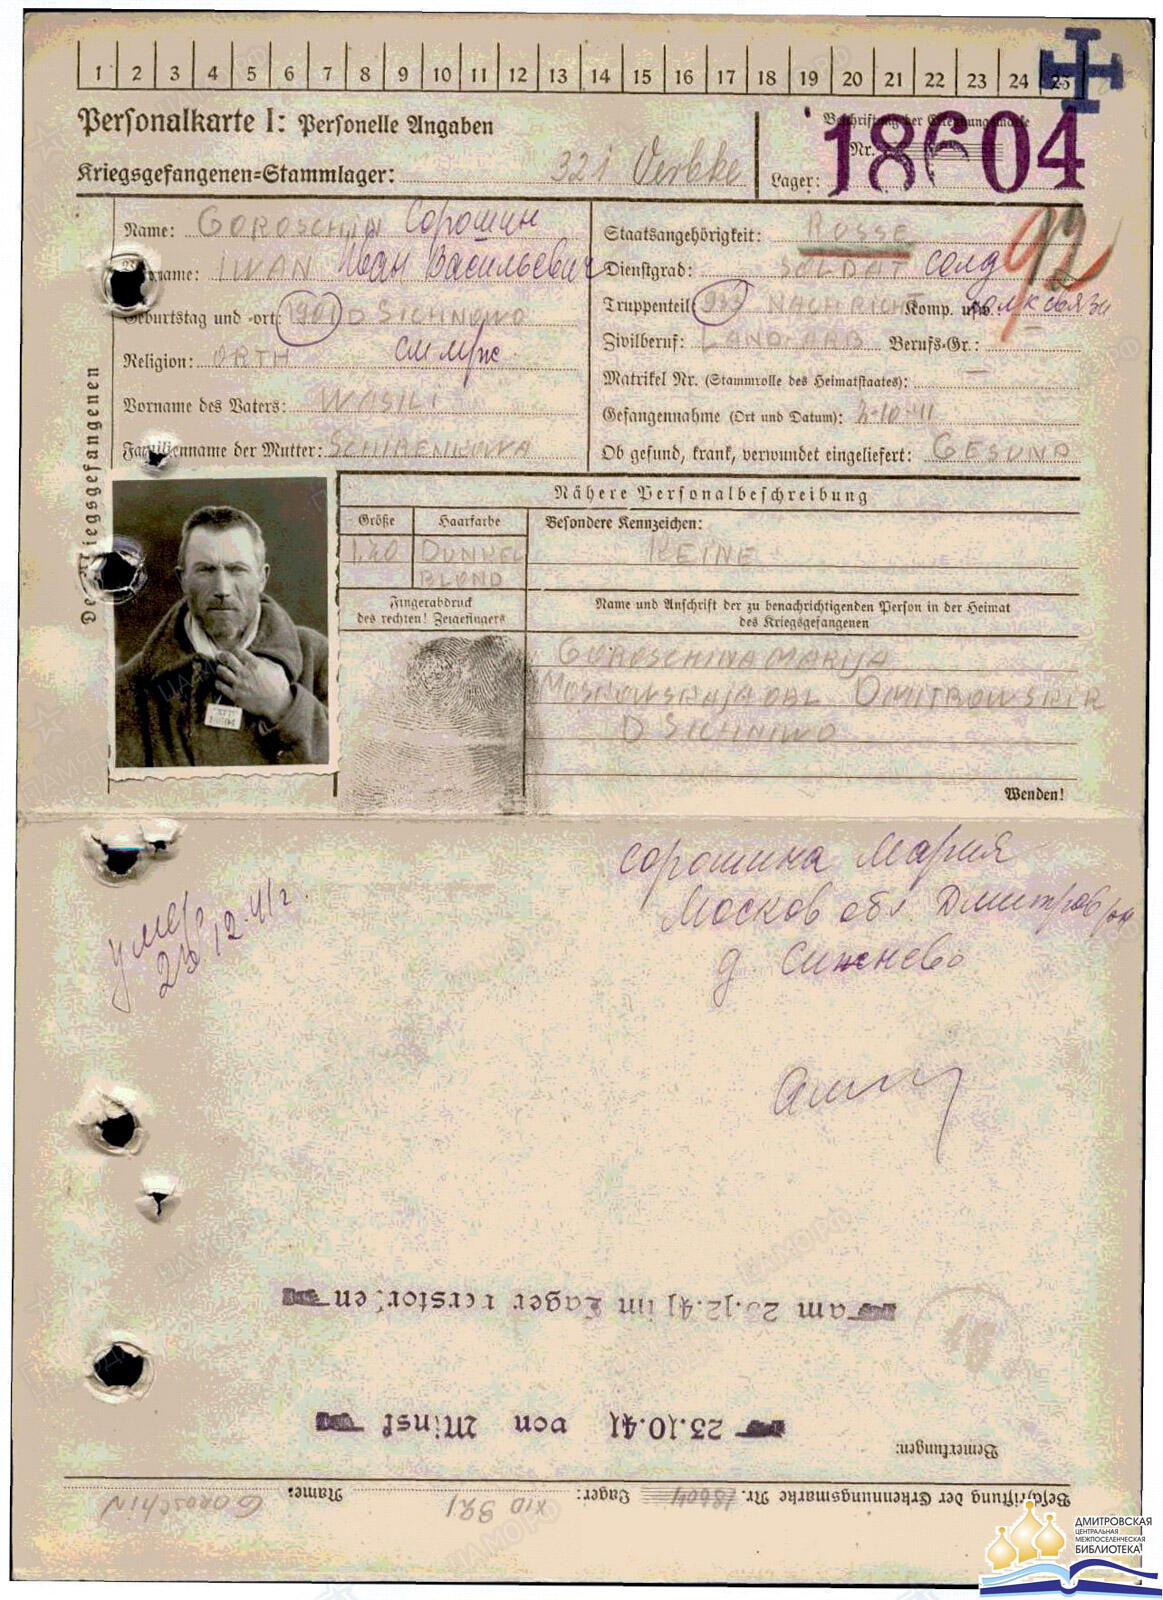 1 2 3 4 5 6 7 8 9 10 11 12 13 14 15 16 17 18 19 20 21 22 23 24 25
Personalkarte I: Personelle Angaben
Beschriftung der Erkennungsmarke
Nr. 18604
Kriegsgefangenen-Stammlager: 321
Lager:
Des Kriegsgefangenen
Name: GOROSCHIN Сорошин
Vorname: IWAN Иван Васильевич
Geburtstag und -ort: 1901 D SICHNOWO
Religion: ORTH
Vorname des Vaters: WASILI
Familienname der Mutter: SCHIRENKOWA
Staatsangehörigkeit: RUSSE
Dienstgrad: SOLDAT солд
92
Truppenteil: 933 NACHRICHT Komp. usw. полк связи
Zivilberuf: LAND-ARB Berufs-Gr.: —
Matrikel Nr. (Stammrolle des Heimatstaates): —
Gefangennahme (Ort und Datum):
Ob gesund, krank, verwundet eingeliefert: GESUND
Nähere Personalbeschreibung
Größe Haarfarbe Besondere Kennzeichen:
1.70 DUNKEL BLOND KEINE
Fingerabdruck
des rechten! Zeigefingers
Name und Anschrift der zu benachrichtigenden Person in der Heimat
des Kriegsgefangenen
GOROSCHINA MARIJA
MOSKOWSKAJA OBL DMITROWSKI R
D SICHNIWO
Wenden!
Сорошина Мария
Москов обл. Дмитров рн
д. Сихнево
умер
23.12.41г.
am 23.12.41 im Lager verstorben
23.10.41 von Minsk
Bemerkungen:
Beschriftung der Erkennungsmarke Nr. 18604 Lager: 321 Name: GOROSCHIN
ДМИТРОВСКАЯ
ЦЕНТРАЛЬНАЯ
МЕЖПОСЕЛЕНЧЕСКАЯ
БИБЛИОТЕКА